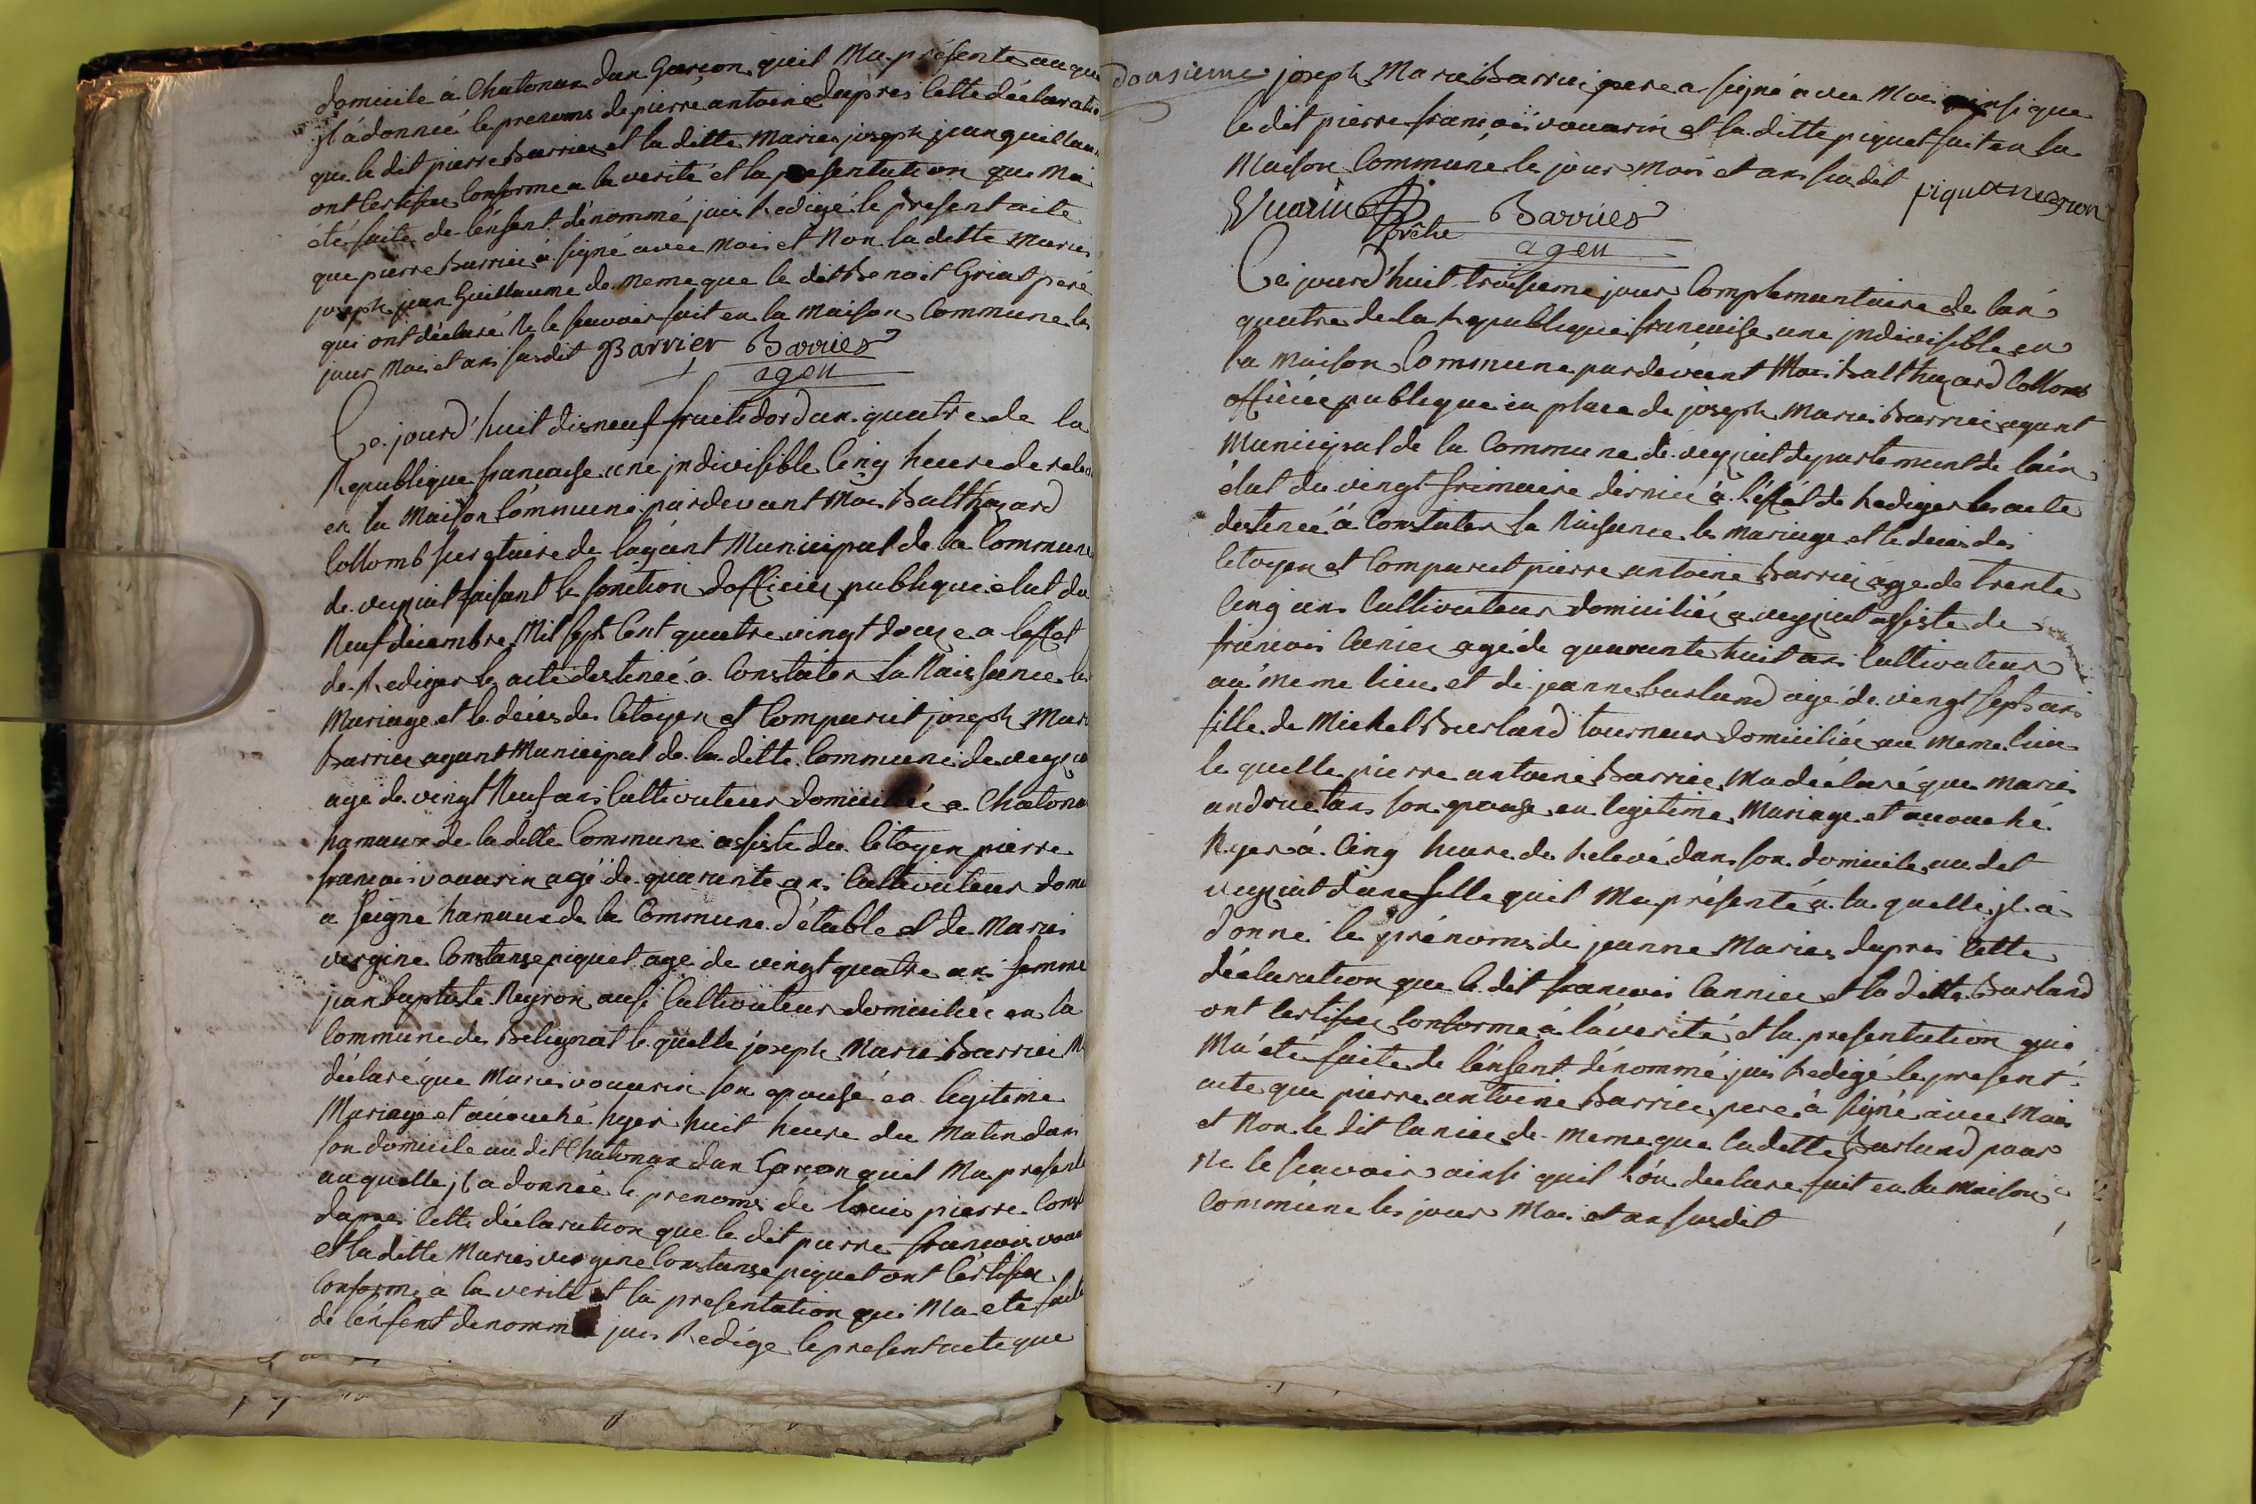 domicile à Chatonax dun Garçon quil Ma présenté auque
jl à donnée le prenoms de pierre antoine dapres cette déclaratio
que le dit pierre Barrier et la ditte Marie joseph jean guillau
ont Certifiée Conforme a la verité et la presentation que Ma
été faite de lénfent dénommé jais Redigé le present acte
que pierre Barrier à signé avec Moi et Non la ditte Marie
joseph jean Guillaume de Meme que le dit Benoit Griat peré
qui ont déclaré Ne le scavoir fait en la Maison Commune les
jour Mois et ans susdit Barrier Barrier
agen
Ce jourd'huit disneuf fruitidord an quatre de la
Republique francaise une jndivisible Cinq heure de relev
en la Maison Commune pardevant Moi Balthazard
Collomb secretaire de lagant Municipal de la Commune
de veyziat faisant le fonction dofficier publique élut du
Neuf decembre Mil sept Cent quatre vingt douze a leffet
de Rediger les acte destinée à Constater la Naissance le
Mariage et le décès des Citoyen et Comparut joseph Mari
Barrier agant Municipal de la ditte Commune de veyzia
agé de vingt Neuf ans Cultivateur domicilliée a Chatona
hamaux de la ditte Commune assisté du Citoyen pierre
francois vouarin agé de quarante ans Cultivateur domi
a seigne hamaux de la Commune d'étable et de Marie
vergine Constanse piquet age de vingt quatre ans femme
jean baptiste Neyron ausi Cultivateur domiciliée en la
Commune de Belignat le quelle joseph Marie Barrier M
déclaré que Marie vouarin son epousé en legitime
Mariage et acouché hyer huit heure du Matin dans
son domicile au dit Chatonax dun Garçon quil Ma presenté
auquelle jl a donnée le prenoms de Louis pierre Const
dapres cette déclaration que le dit pierre francois voua
et la ditte Marie vergine Constanse piquet ont Certifiée
Conforme à la verité et la presentation qui Ma eté faite
de lénfent denommé jais Redigé le present acte que
dousieme joseph Marie Barrier pere a signé avec Moi ainsi que
le dit pierre francois vouarin et la ditte piquet fait en la
Maison Commune le jour Mois et ans susdit piquet neyron
Vuarin Barrier
agen
Ce jourd'huit troisieme jour Complementaire de lan
quatre de la Republique francaise une jndivisible en
la Maison Commune pardevant Moi Balthazard Collomb
officiée publique en place de joseph Marie Barrier agant
Municipal de la Commune de veyziat departement de lain
élut du vingt frimaire dernier à l'éffét de Rediger les acte
destinée à Constater la Naisance les Mariage et le deces des
Citoyen et Comparut pierre antoine Barrier agé de trente
Cinq ans Cultivateur domiciliée a veyziat assisté de
francois Canier agé de quarante huit ans Cultivateur
au meme lieu et de jeanne burland agé de vingt sept ans
fille de Michel Burland tourneur domiciliée au meme lieu
le quelle pierre antoine Barrier Ma déclaré que Marie
andruetan son epouse en legitime Mariage et acouché
hyer à Cinq heure de Relevé dans son domicile au dit
veyziat dune fille quil Ma présenté a la quelle jl a
donné le prénoms de jeanne Marie dapres cette
déclaration que le dit francois Cannier et la ditte Burland
ont Certifiée Conforme à la verité et la presentation qui
Má été faite de lénfent dénommé jais Redigé le present
acte que pierre antoine Barrier pere à signé avec Moi
et Non le dit Canier de Meme que la ditte Burland pour
Ne le scavoir ainsi quil lon déclaré fait en la Maison
Commune les jour Mois et an susdit